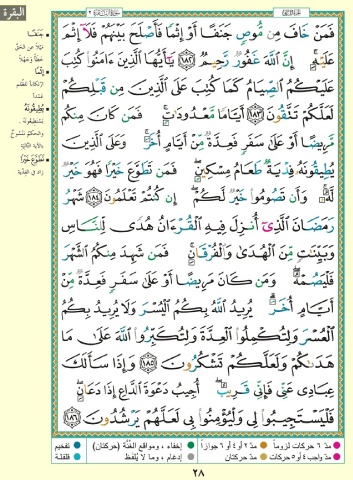 البقرة
فَمَنْ خَافَ مِن مُّوصٍ جَنَفًا أَوْ إِثْمًا فَأَصْلَحَ بَيْنَهُمْ فَلَآ إِثْمَ
عَلَيْهِ ۚ إِنَّ ٱللَّهَ غَفُورٌ رَّحِيمٌ ﴿١٨٢﴾ يَـٰٓأَيُّهَا ٱلَّذِينَ ءَامَنُوا۟ كُتِبَ
عَلَيْكُمُ ٱلصِّيَامُ كَمَا كُتِبَ عَلَى ٱلَّذِينَ مِن قَبْلِكُمْ
لَعَلَّكُمْ تَتَّقُونَ ﴿١٨٣﴾ أَيَّامًا مَّعْدُودَٰتٍ ۚ فَمَن كَانَ مِنكُم
مَّرِيضًا أَوْ عَلَىٰ سَفَرٍ فَعِدَّةٌ مِّنْ أَيَّامٍ أُخَرَ ۚ وَعَلَى ٱلَّذِينَ
يُطِيقُونَهُۥ فِدْيَةٌ طَعَامُ مِسْكِينٍ ۖ فَمَن تَطَوَّعَ خَيْرًا فَهُوَ خَيْرٌ
لَّهُۥ ۚ وَأَن تَصُومُوا۟ خَيْرٌ لَّكُمْ ۖ إِن كُنتُمْ تَعْلَمُونَ ﴿١٨٤﴾ شَهْرُ
رَمَضَانَ ٱلَّذِىٓ أُنزِلَ فِيهِ ٱلْقُرْءَانُ هُدًى لِّلنَّاسِ
وَبَيِّنَـٰتٍ مِّنَ ٱلْهُدَىٰ وَٱلْفُرْقَانِ ۚ فَمَن شَهِدَ مِنكُمُ ٱلشَّهْرَ
فَلْيَصُمْهُ ۖ وَمَن كَانَ مَرِيضًا أَوْ عَلَىٰ سَفَرٍ فَعِدَّةٌ مِّنْ
أَيَّامٍ أُخَرَ ۗ يُرِيدُ ٱللَّهُ بِكُمُ ٱلْيُسْرَ وَلَا يُرِيدُ بِكُمُ
ٱلْعُسْرَ وَلِتُكْمِلُوا۟ ٱلْعِدَّةَ وَلِتُكَبِّرُوا۟ ٱللَّهَ عَلَىٰ مَا
هَدَىٰكُمْ وَلَعَلَّكُمْ تَشْكُرُونَ ﴿١٨٥﴾ وَإِذَا سَأَلَكَ
عِبَادِى عَنِّى فَإِنِّى قَرِيبٌ ۖ أُجِيبُ دَعْوَةَ ٱلدَّاعِ إِذَا دَعَانِ ۖ
فَلْيَسْتَجِيبُوا۟ لِى وَلْيُؤْمِنُوا۟ بِى لَعَلَّهُمْ يَرْشُدُونَ ﴿١٨٦﴾
جَنَفًا
إِثْمًا
يُطِيقُونَهُ
تَطَوَّعَ خَيْرًا
زاد في الفدية
مدّ ٦ حركات لزوماً مدّ ٢ أو ٤ أو ٦ جوازاً إخفاء، ومواقع الغُنَّة (حركتان) تفخيم
مدّ واجب ٤ أو ٥ حركات مدّ حركتان إدغام، وما لا يُلفظ قلقلة
٢٨